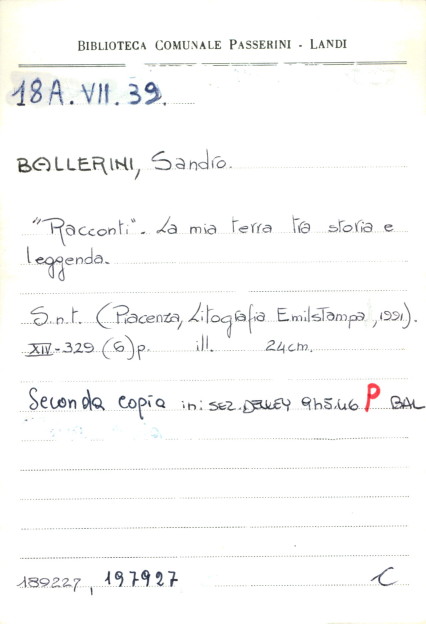 BIBLIOTECA COMUNALE PASSERINI - LANDI
18A.VII.39.
BALLERINI, Sandro.
"Racconti". La mia terra tra storia e
leggenda.
S.n.t. (Piacenza, Litografia Emilstampa, 1991).
XIV-329 (6)p. ill. 24cm.
Seconda copia in: SEZ. DEWEY 945.46 P BAL
189227, 197927
C